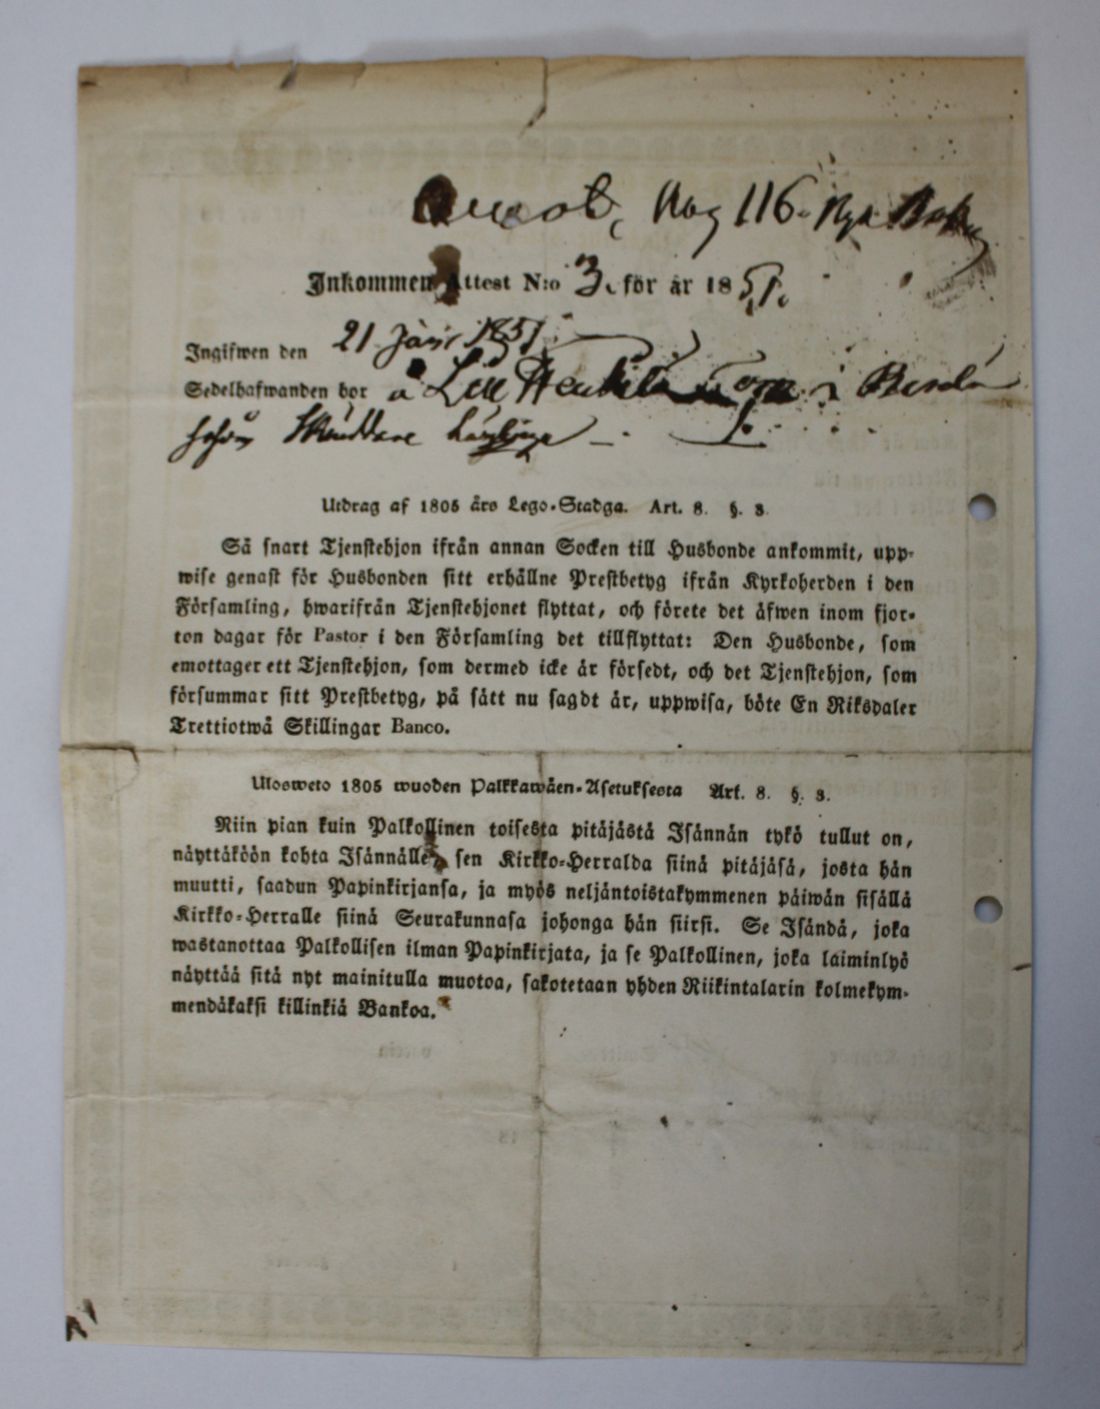 116. Nya
Inkommen Attest N:o 3. för år 1851.
Ingifwen den 21 Janr 1851.
Sedelhafwanden bor å Lill Heikkilä i
Utdrag af 1805 års Lego-Stadga. Art. 8. §. 3.
Så snart Tjenstehjon ifrån annan Socken till Husbonde ankommit, upp-
wise genast för Husbonden sitt erhållne Prestbetyg ifrån Kyrkoherden i den
Församling, hwarifrån Tjenstehjonet flyttat, och förete det äfwen inom fjor-
ton dagar för Pastor i den Församling det tillflyttat: Den Husbonde, som
emottager ett Tjenstehjon, som dermed icke är försedt, och det Tjenstehjon, som
försummar sitt Prestbetyg, på sätt nu sagdt är, uppwisa, böte En Riksdaler
Trettiotwå Skillingar Banco.
Ulosweto 1805 wuoden Palkkawäen-Asetuksesta Art. 8. §. 3.
Niin pian kuin Palkollinen toisesta pitäjästä Isännän tykö tullut on,
näyttäköön kohta Isännälle sen Kirkko-Herralda siinä pitäjäsä, josta hän
muutti, saadun Papinkirjansa, ja myös neljäntoistakymmenen päiwän sisällä
Kirkko-Herralle siinä Seurakunnasa johonga hän siirsi. Se Isändä, joka
wastanottaa Palkollisen ilman Papinkirjata, ja se Palkollinen, joka laiminlyö
näyttää sitä nyt mainitulla muotoa, sakotetaan yhden Riikintalarin kolmekym-
mendäkaksi killinkiä Bankoa.